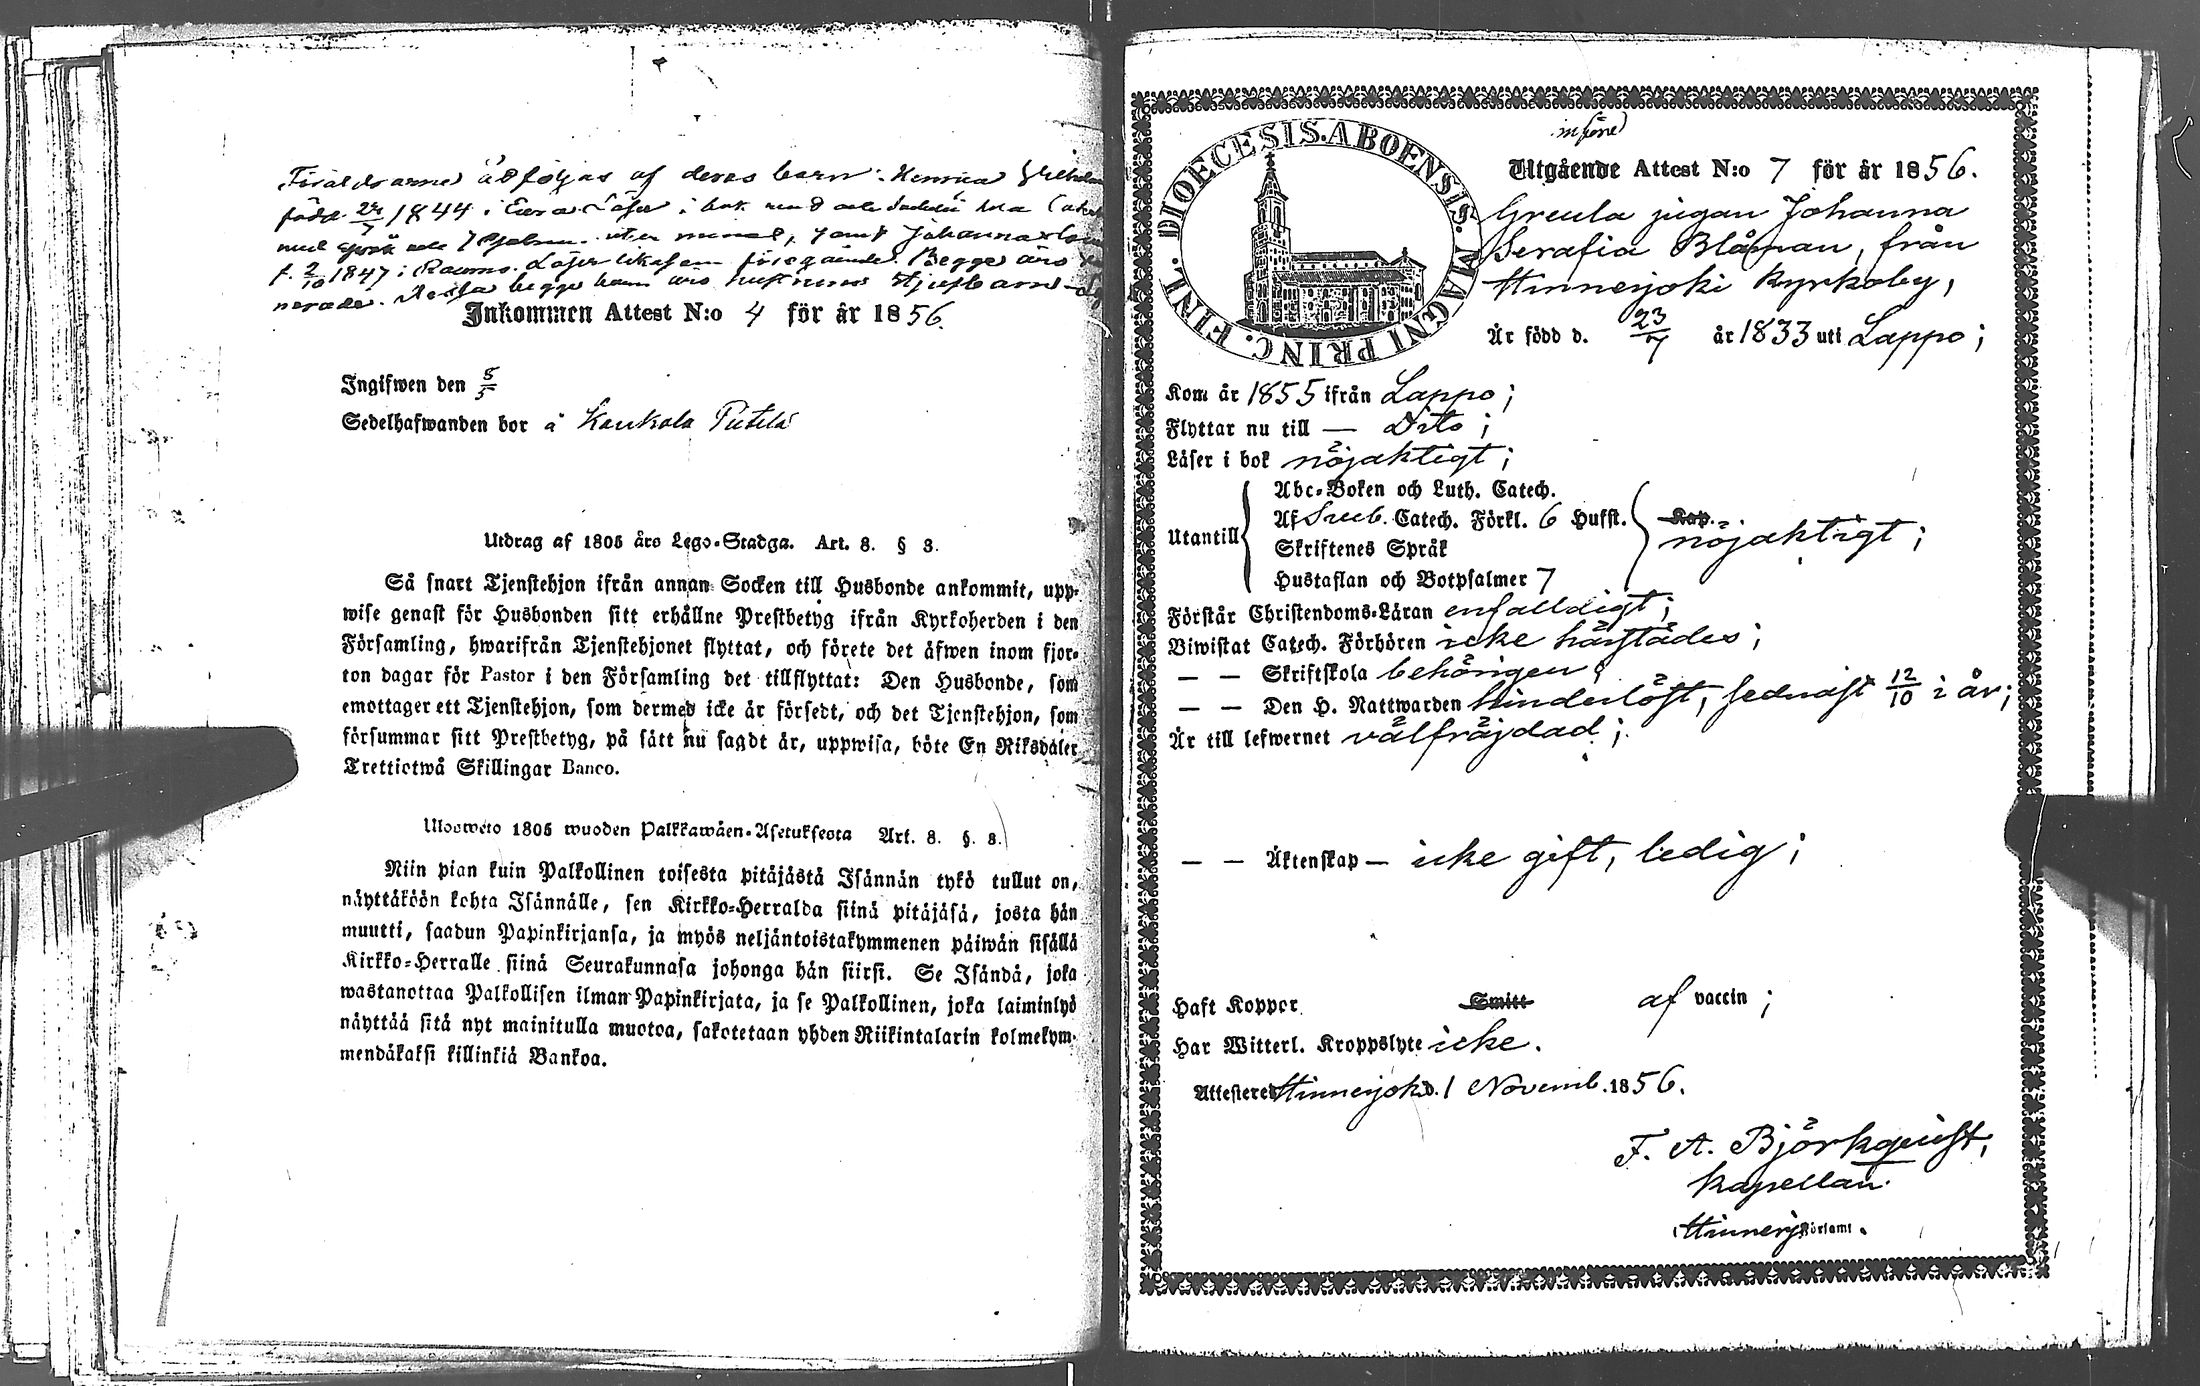 Föräldrarne åtföljas af deras barn: Henrica
född 1844 i Eura Läser i bok
Johanna
f. 2/10 1847 i Raumo. Läser likasom föregående. Begge äro
nerade. Dessa begge barn äro
Inkommen Attest N:o 4 för år 1856.
Ingifwen den 5/5
Sedelhafwanden bor å Kaukola
Utdrag af 1805 års Lego-Stadga. Art. 8. § 3.
Så snart Tjenstehjon ifrån annan Socken till Husbonde ankommit, upp-
wise genast för Husbonden sitt erhållne Prestbetyg ifrån Kyrkoherden i den
Församling, hwarifrån Tjenstehjonet flyttat, och förete det äfwen inom fjor-
ton dagar för Pastor i den Församling det tillflyttat: Den Husbonde, som
emottager ett Tjenstehjon, som dermed icke är försedt, och det Tjenstehjon, som
försummar sitt Prestbetyg, på sätt nu sagdt är, uppwisa, böte En Riksdaler
Trettiotwå Skillingar Banco.
Ulosweto 1805 wuoden Palkkawäen-Asetuksesta Art. 8. §. 8.
Niin pian kuin Palkollinen toisesta pitäjästä Isännän tykö tullut on,
näyttäköön kohta Isännälle, sen Kirkko-Herralda siinä pitäjäsä, josta hän
muutti, saadun Papinkirjansa, ja myös neljäntoistakymmenen päiwän sisällä
Kirkko-Herralle siinä Seurakunnasa johonga hän siirsi. Se Isändä, joka
wastanottaa Palkollisen ilman Papinkirjata, ja se Palkollinen, joka laiminlyö
näyttää sitä nyt mainitulla muotoa, sakotetaan yhden Riikintalarin kolmekym-
mendäkaksi killinkiä Bankoa.
DIOECESIS. ABOENSIS. MAGNI PRINC. FINL.
införd
Utgående Attest N:o 7 för år 1856.
Greula pigan Johanna
Serafia Blåman, från
Hinnerjoki Kyrkoby,
Är född d. 23/7 år 1833 uti Lappo;
Kom år 1855 ifrån Lappo;
Flyttar nu till — Dito;
Läser i bok nöjaktigt;
Abc-Boken och Luth. Catech.
Utantill Af Sveb. Catech. Förkl. 6 Hufst. Kap. nöjaktigt;
Skriftenes Språk
Hustaflan och Botpsalmer 7
Förstår Christendoms-Läran enfalldigt;
Biwistat Catech. Förhören icke härstädes;
— — Skriftskola behörigen;
— — Den H. Nattwarden hinderlöst, sednast 12/10 i år;
Är till lefwernet välfräjdad;
— — Äktenskap — icke gift, ledig;
Haft Koppor Smitt af vaccin;
Har Witterl. Kroppslyte icke.
Attesteres Hinnerjoki d. 1 Novemb. 1856.
F. A. Björkqvist,
Kapellan.
Hinnerj. Förfamt.